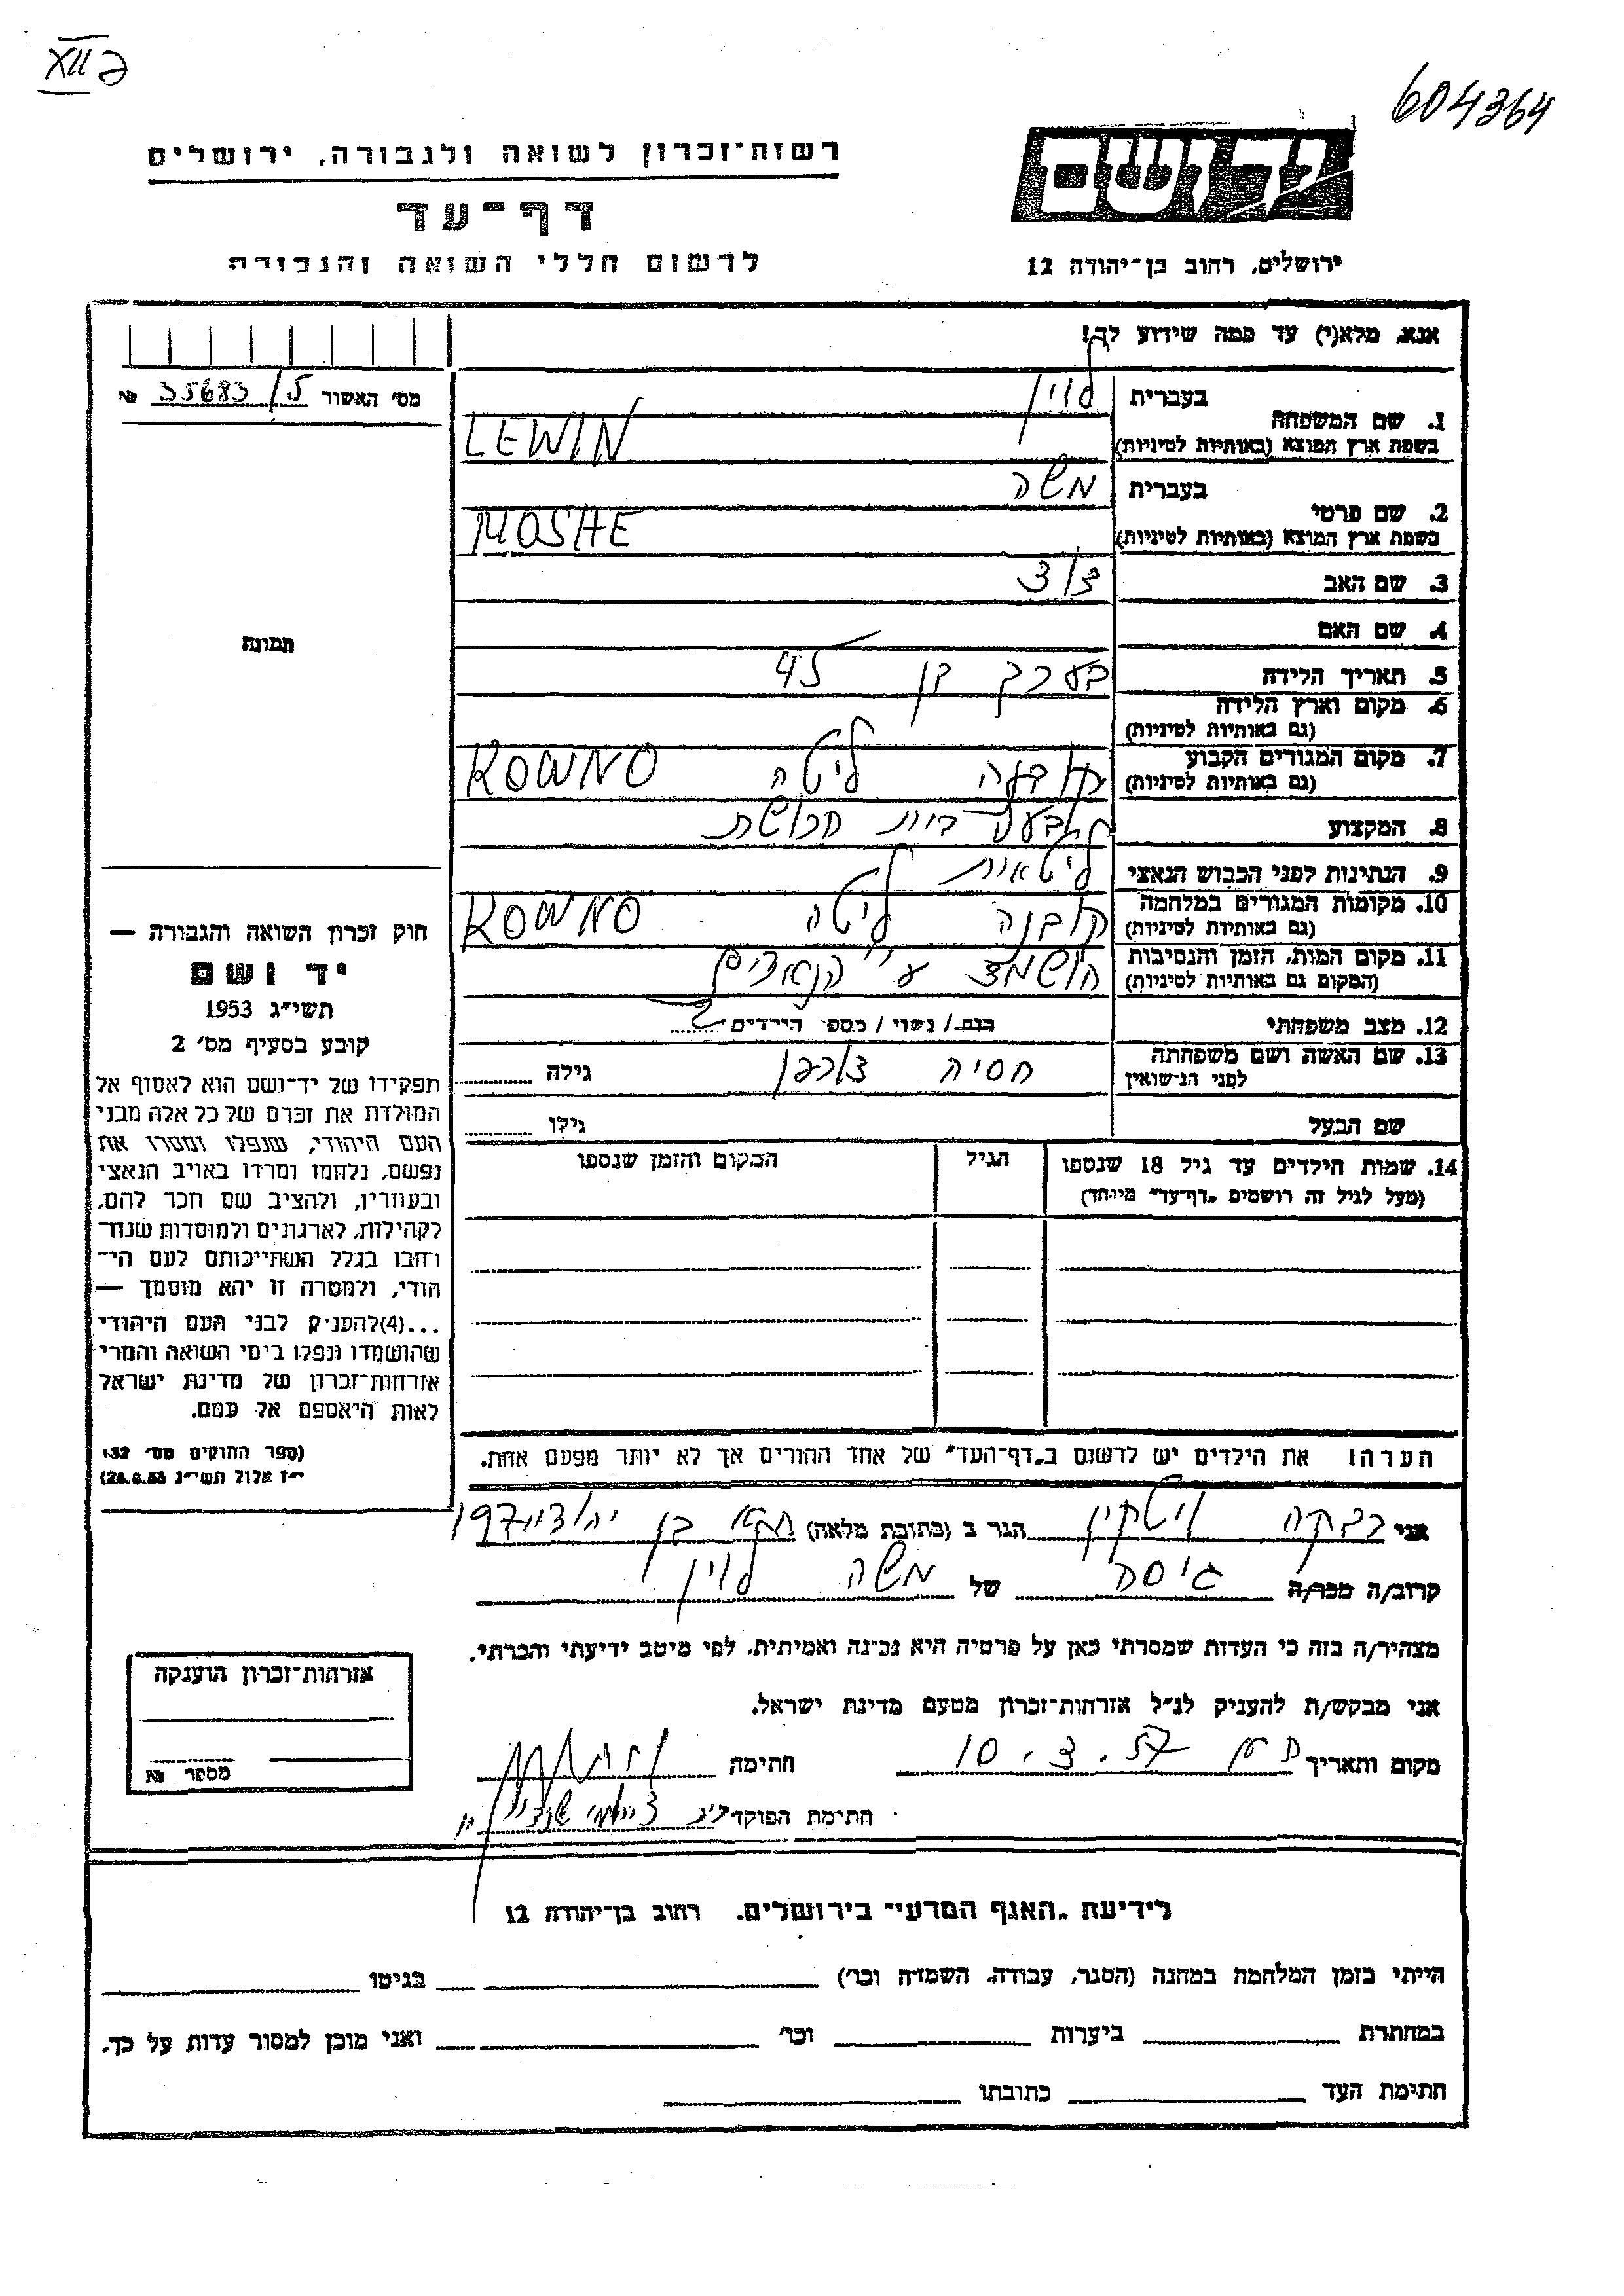 XII ə
604364
רשות־זכרון לשואה ולגבורה, ירושלים
דף־עד
לרשום חללי השואה והגבורה
יד ושם
ירושלים, רחוב בן־יהודה 12
אנא, מלא(י) עד כמה שידוע לך!
מס' האשור 35683/5 №
תמונה
1. שם המשפחה
בעברית לוין
בשפת ארץ המוצא (באותיות לטיניות) LEWIN
2. שם פרטי
בעברית משה
בשפת ארץ המוצא (באותיות לטיניות) MOSHE
3. שם האב
4. שם האם
5. תאריך הלידה בערך בן 45
6. מקום וארץ הלידה
(גם באותיות לטיניות)
7. מקום המגורים הקבוע קובנה ליטה KOWNO
(גם באותיות לטיניות)
8. המקצוע בעל בית חרושת
9. הנתינות לפני הכבוש הנאצי ליטאית
10. מקומות המגורים במלחמה קובנה ליטה KOWNO
(גם באותיות לטיניות)
11. מקום המות, הזמן והנסיבות הושמד ע"י הנאצים
(המקום גם באותיות לטיניות)
12. מצב משפחתי רווק/נשוי/מספר הילדים 2
13. שם האשה ושם משפחתה חסיה גילה
לפני הנישואין
שם הבעל גילו
14. שמות הילדים עד גיל 18 שנספו הגיל המקום והזמן שנספו
(מעל לגיל זה רושמים „דף־עד" מיוחד)
הערה! את הילדים יש לרשום ב„דף־העד" של אחד ההורים אך לא יותר מפעם אחת.
חוק זכרון השואה והגבורה —
יד ושם
תשי"ג 1953
קובע בסעיף מס' 2
תפקידו של יד־ושם הוא לאסוף אל
המולדת את זכרם של כל אלה מבני
העם היהודי, שנפלו ומסרו את
נפשם, נלחמו ומרדו באויב הנאצי
ובעוזריו, ולהציב שם וזכר להם,
לקהילות, לארגונים ולמוסדות שנח־
רבו בגלל השתייכותם לעם הי־
הודי, ולמטרה זו יהא מוסמך —
...(4) להעניק לבני העם היהודי
שהושמדו ונפלו בימי השואה והמרי
אזרחות־זכרון של מדינת ישראל
לאות היאספם אל עמם.
(ספר החוקים מס' 132
י"ז אלול תשי"ג 28.8.53)
אני רבקה ויטקין הגר ב (כתובת מלאה) בן יהודה 197
קרוב/ה מכר/ה גיסה של משה לוין
מצהיר/ה בזה כי העדות שמסרתי כאן על פרטיה היא נכונה ואמיתית, לפי מיטב ידיעתי והכרתי.
אני מבקש/ת להעניק לנ"ל אזרחות־זכרון מטעם מדינת ישראל.
מקום ותאריך 10.3.57 חתימה
חתימת הפוקד
אזרחות־זכרון הוענקה
מספר №
לידיעת „האגף המדעי" בירושלים, רחוב בן־יהודה 12
הייתי בזמן המלחמה במחנה (הסגר, עבודה, השמדה וכו') בגיטו
במחתרת ביערות וכו' ואני מוכן למסור עדות על כך.
חתימת העד כתובתו